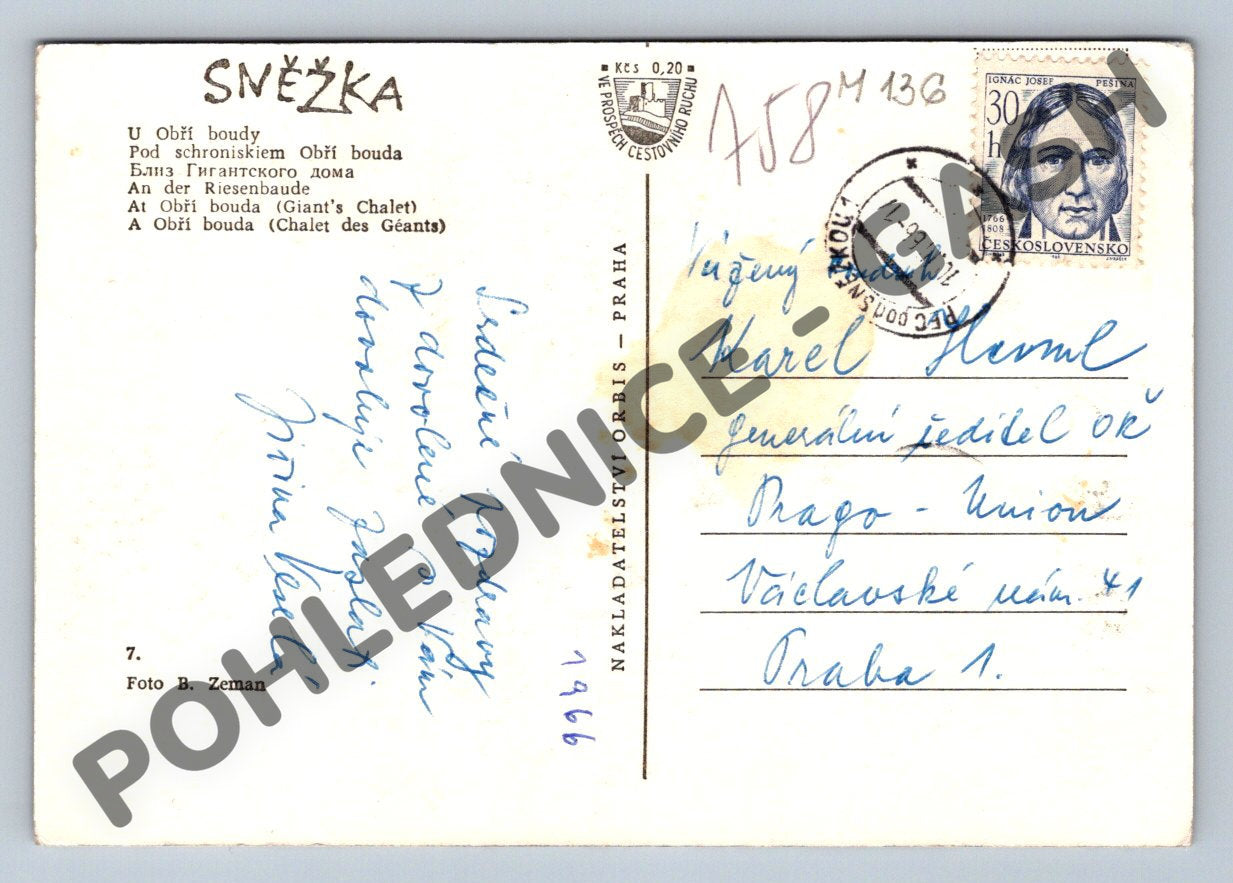 SNĚŽKA
U Obří boudy
Pod schroniskiem Obří bouda
Близ Гигантского дома
An der Riesenbaude
At Obří bouda (Giant's Chalet)
A Obří bouda (Chalet des Géants)
Srdečné pozdravy
z dovolené Vám
dovoluje zaslati
Jiřina Veselá
7.
Foto B. Zeman
1966
Kčs 0,20
VE PROSPĚCH CESTOVNÍHO RUCHU
NAKLADATELSTVÍ ORBIS — PRAHA
758
M 136
IGNÁC JOSEF PEŠINA
30
h
1766
1808
ČESKOSLOVENSKO
PEC pod SNĚŽKOU 1
Vážený soudruh
Karel
generální ředitel OK
Prago - Union
Václavské nám. 41
Praha 1.
POHLEDNICE - CASH